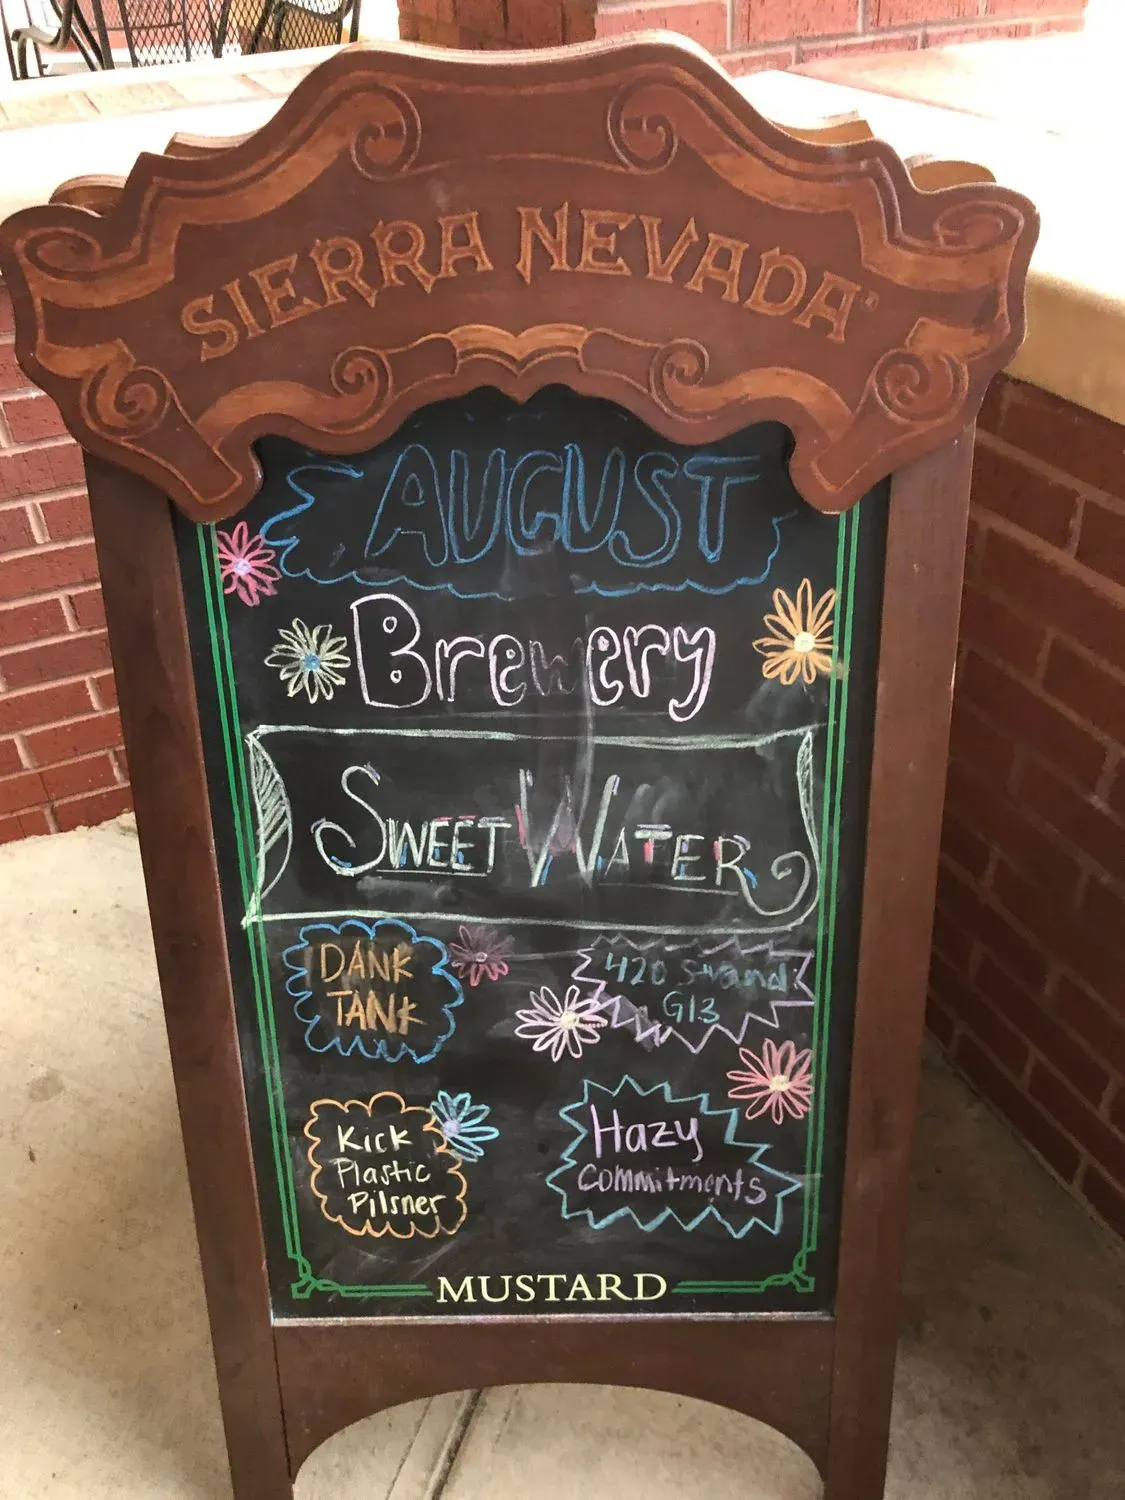 SIERRA NEVADA
AUGUST
Brewery
SWEET WATER
DANK
TANK
420 Strand
G13
Kick
Plastic
Pilsner
Hazy
Commitments
MUSTARD